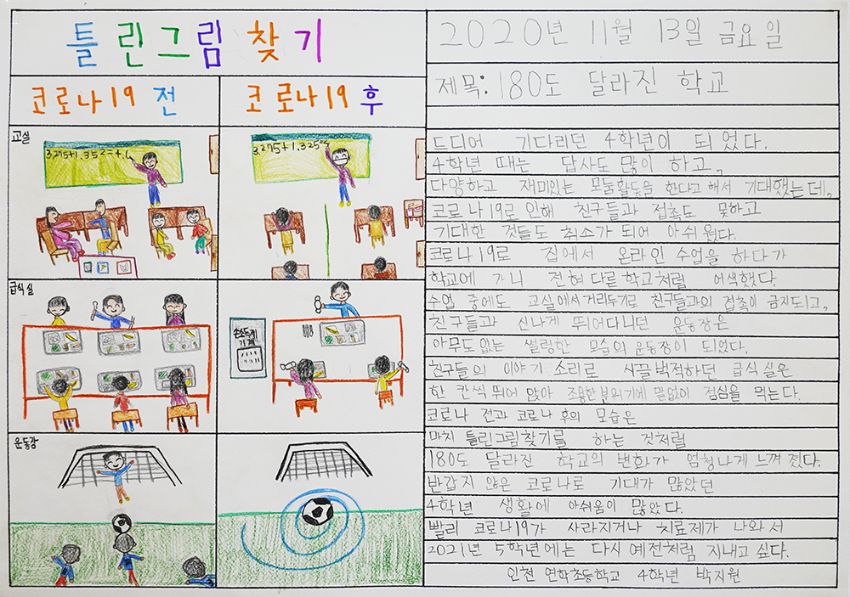 틀린그림찾기
코로나19 전
코로나19 후
교실
3.275+1.352=4.6
3.275+1.325=
급식실
운동장
2020년 11월 13일 금요일
제목: 180도 달라진 학교
드디어 기다리던 4학년이 되었다.
4학년 때는 답사도 많이 하고,
다양하고 재미있는 모둠활동을 한다고 해서 기대했는데,
코로나19로 인해 친구들과 접촉도 못하고
기대한 것들도 취소가 되어 아쉬웠다.
코로나19로 집에서 온라인 수업을 하다가
학교에 가니 전혀 다른 학교처럼 어색했다.
수업 중에도 교실에서 거리두기로 친구들과의 접촉이 금지되고,
친구들과 신나게 뛰어다니던 운동장은
아무도 없는 썰렁한 모습의 운동장이 되었다.
친구들의 이야기 소리로 시끌벅적하던 급식실은
한 칸씩 뛰어 앉아 조용한 분위기에 말없이 점심을 먹는다.
코로나 전과 코로나 후의 모습은
마치 틀린그림찾기를 하는 것처럼
180도 달라진 학교의 변화가 엄청나게 느껴졌다.
반갑지 않은 코로나로 기대가 많았던
4학년 생활에 아쉬움이 많았다.
빨리 코로나19가 사라지거나 치료제가 나와서
2021년 5학년에는 다시 예전처럼 지내고 싶다.
인천 연학초등학교 4학년 박지원